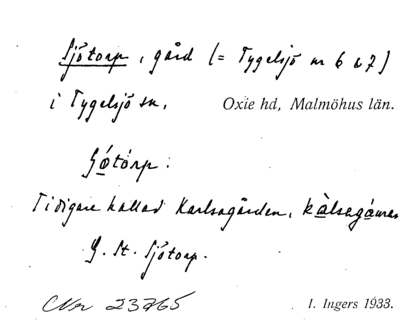 Sjötorp, gård (= Tygelsjö nr 6 o 7)
i Tygelsjö sn, Oxie hd, Malmöhus län.
Tidigare kallad Karlsagården,
G. St. Sjötorp.
CNr 23765 I. Ingers 1933.